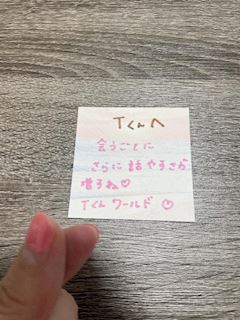 Tくんへ
会うごとに
さらに話やすさら
増すね♡
Tくんワールド♡